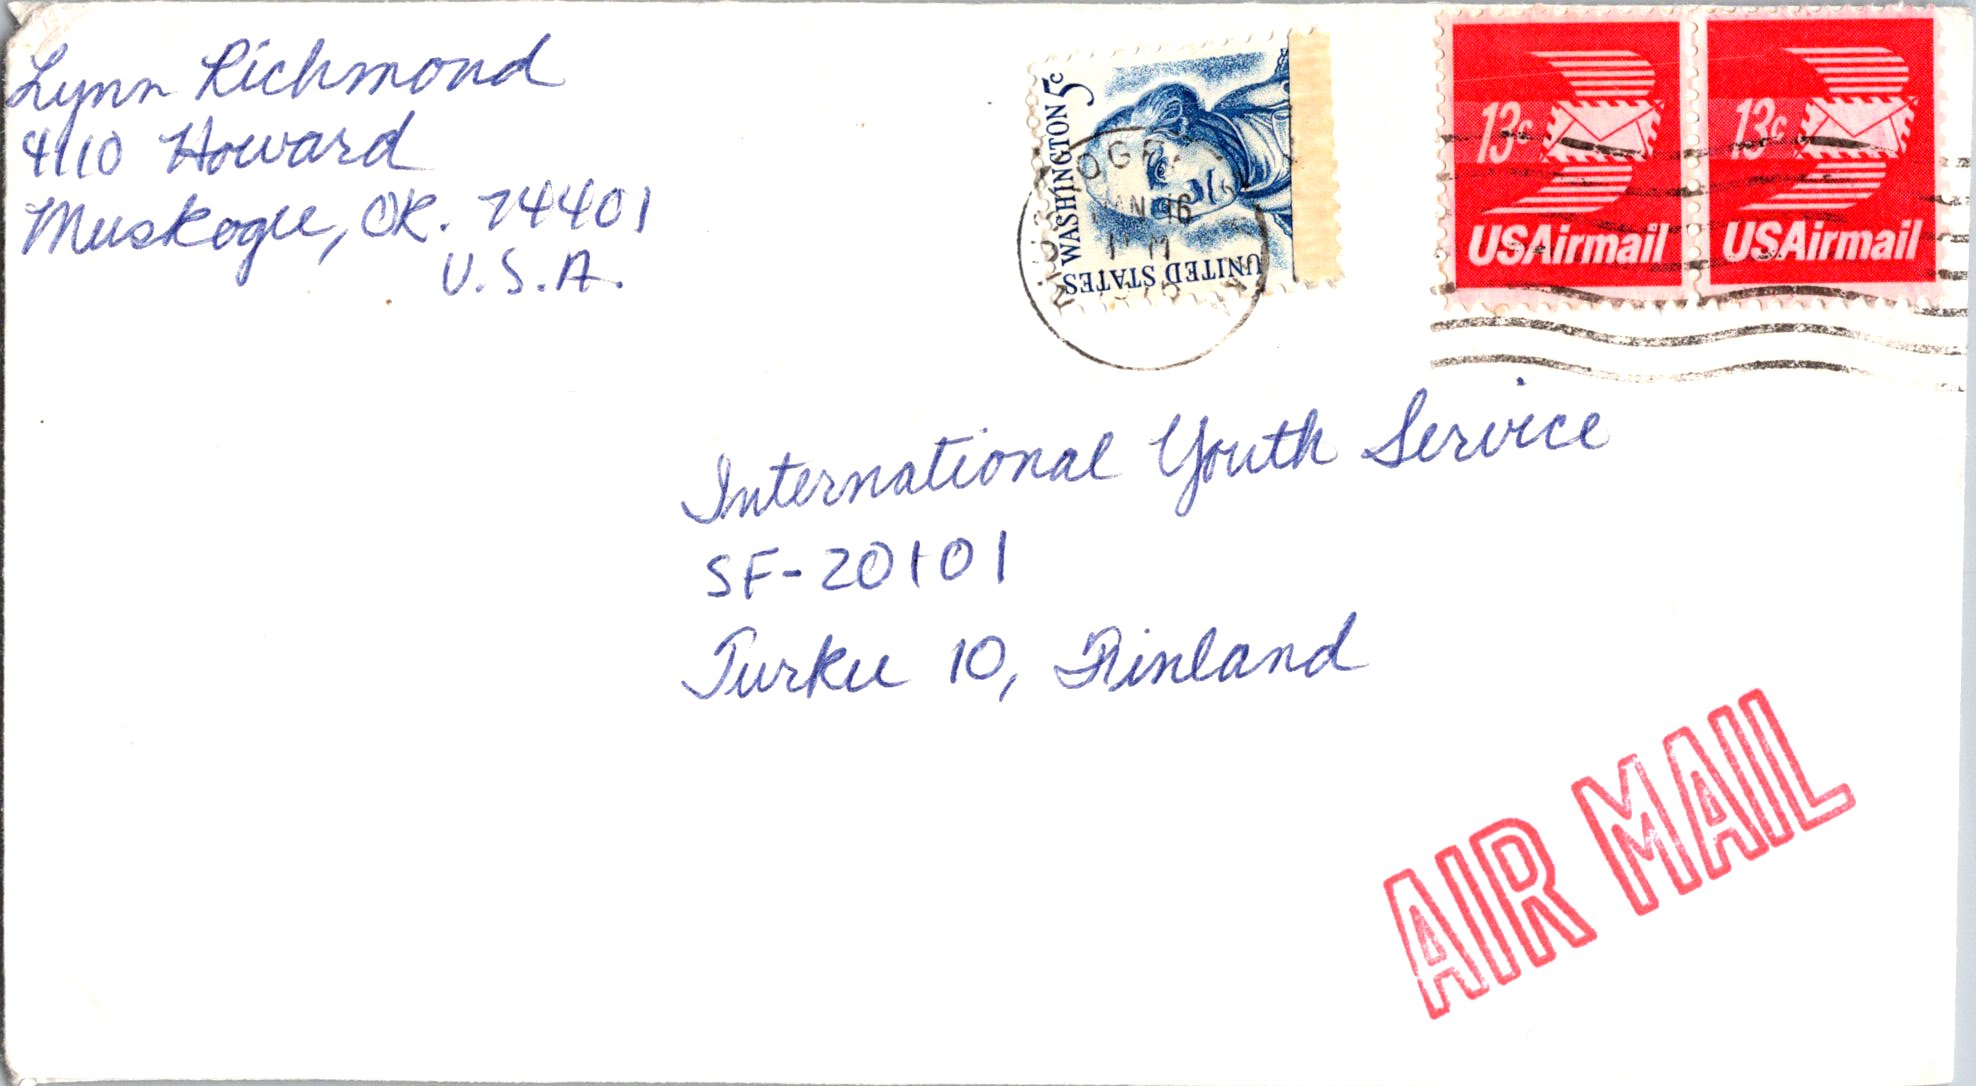 Lynn Richmond
4110 Howard
Muskogee, OK. 74401
U.S.A.
UNITED STATES
WASHINGTON 5c
JAN 16
13c
USAirmail
13c
USAirmail
International Youth Service
SF-20101
Turku 10, Finland
AIR MAIL